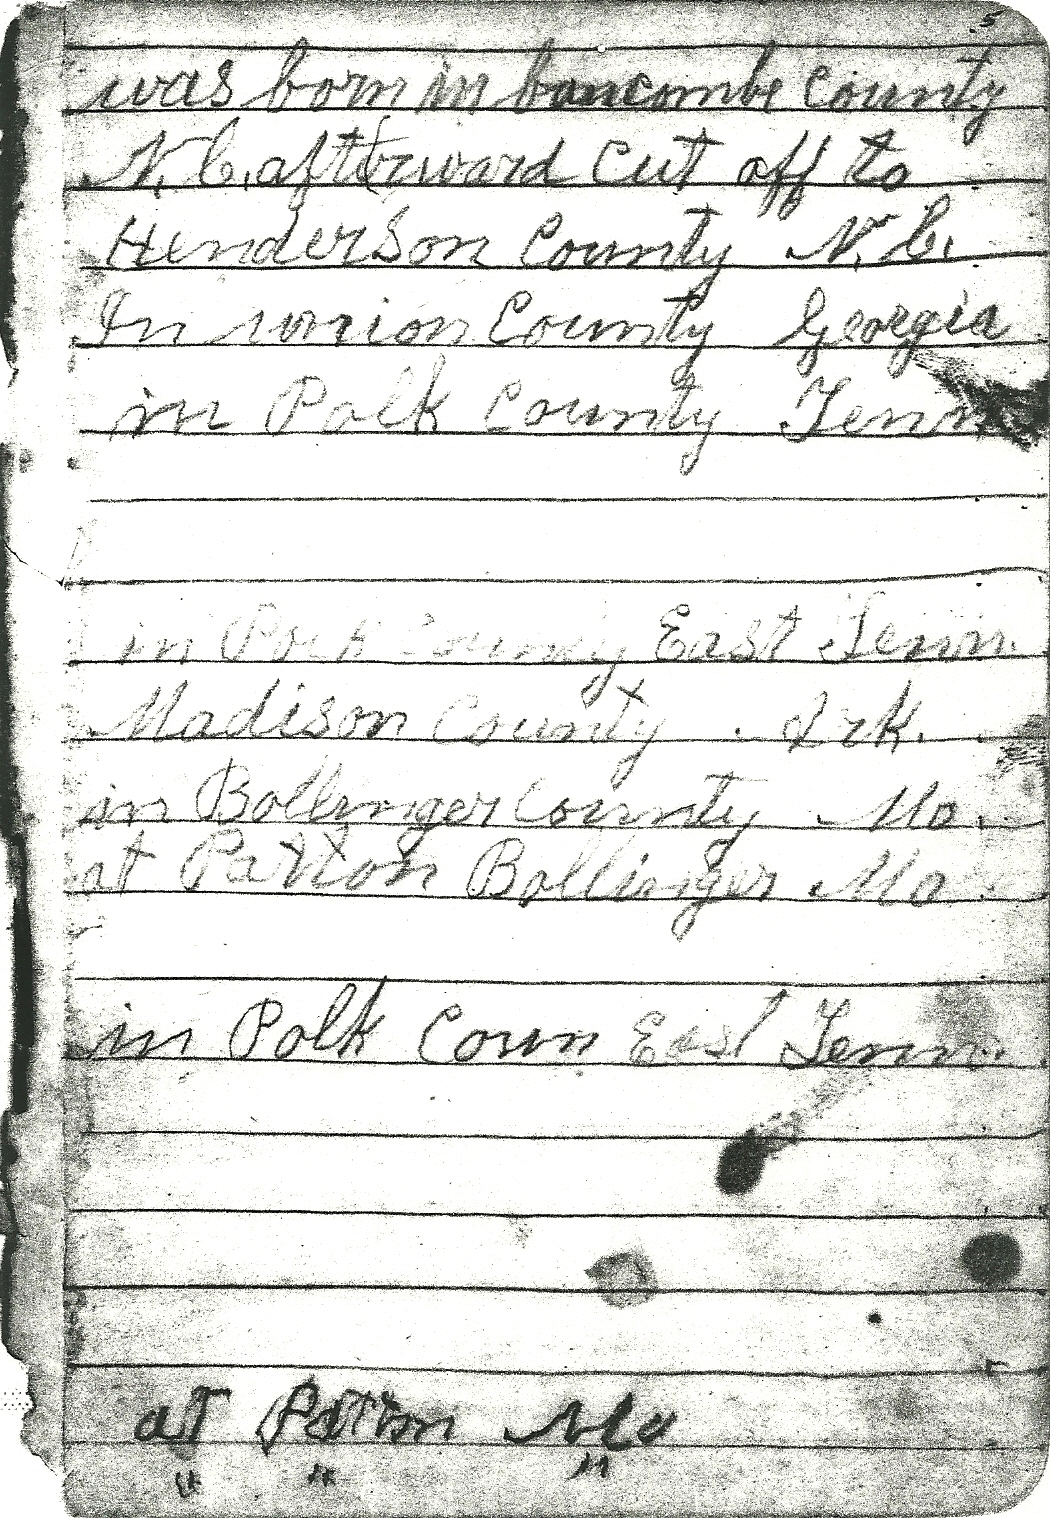 5
was born in boncombe County
N. C. afterward Cut off to
Henderson County N. C.
In union County Georgia
in Polk County Tenn
in Polk County East Tenn.
Madison County. Ark.
in Bollinger County Mo.
at Patton Bollinger Mo
in Polk Coun East Tenn.
at Patton Mo
" " "